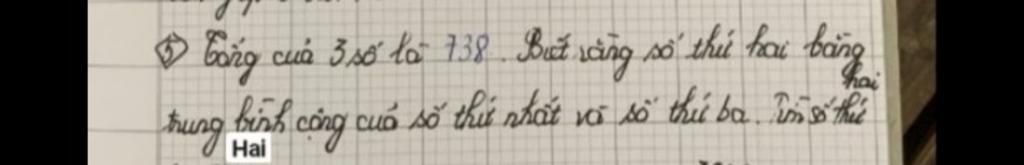 ⑤ Tổng của 3 số là 738. Biết rằng số thứ hai bằng
trung bình cộng của số thứ nhất và số thứ ba. Tìm số thứ hai
Hai